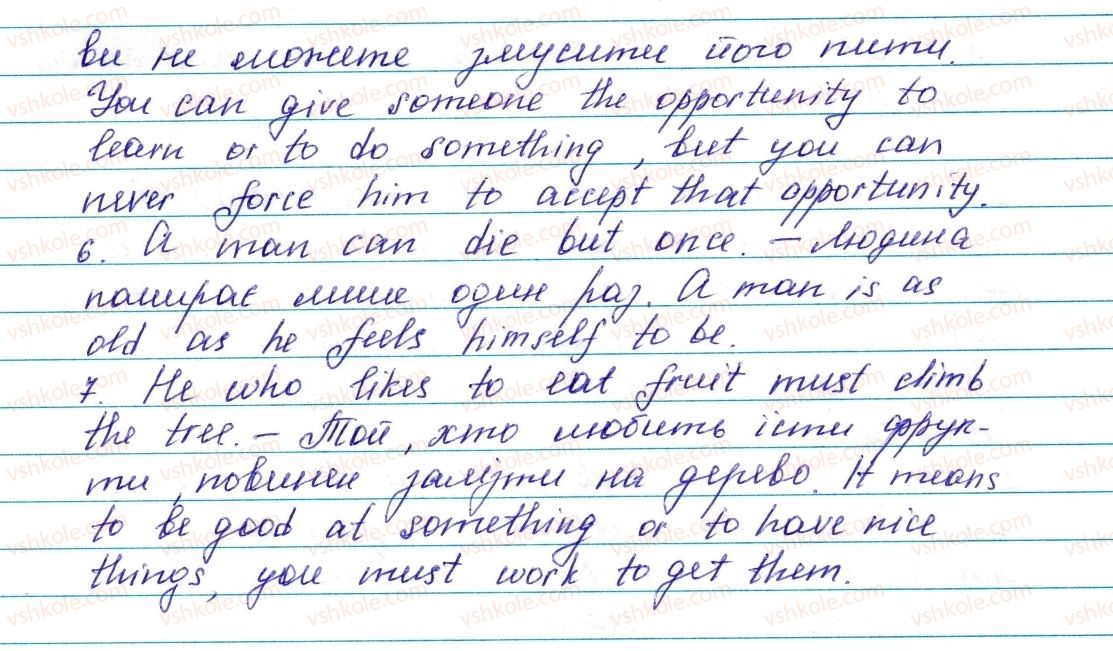 ви не можете змусити його пити.
You can give someone the opportunity to
learn or to do something, but you can
never force him to accept that opportunity.
6. A man can die but once. – Людина
помирає лише один раз. A man is as
old as he feels himself to be.
7. He who likes to eat fruit must climb
the tree. – Той, хто любить їсти фрук-
ти, повинен залізти на дерево. It means
to be good at something or to have nice
things, you must work to get them.